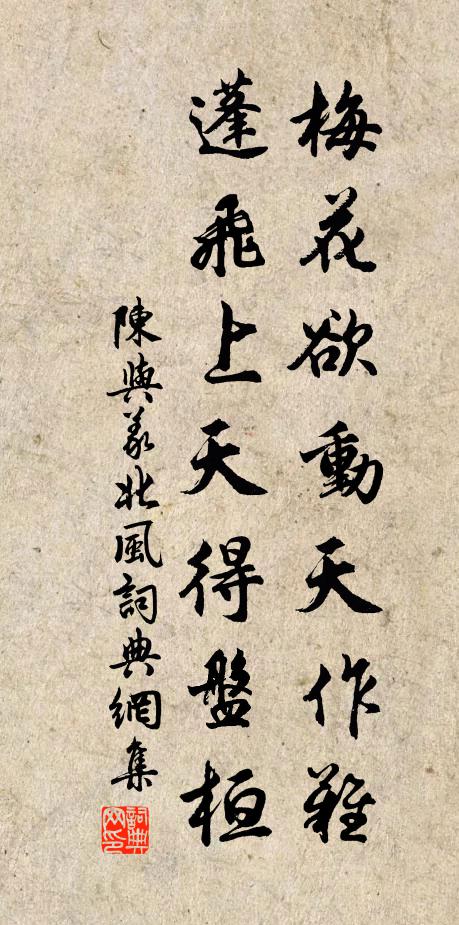 梅花欲動天作難
蓬飛上天得盤桓
陳與義北風詞典網集
詞典网印